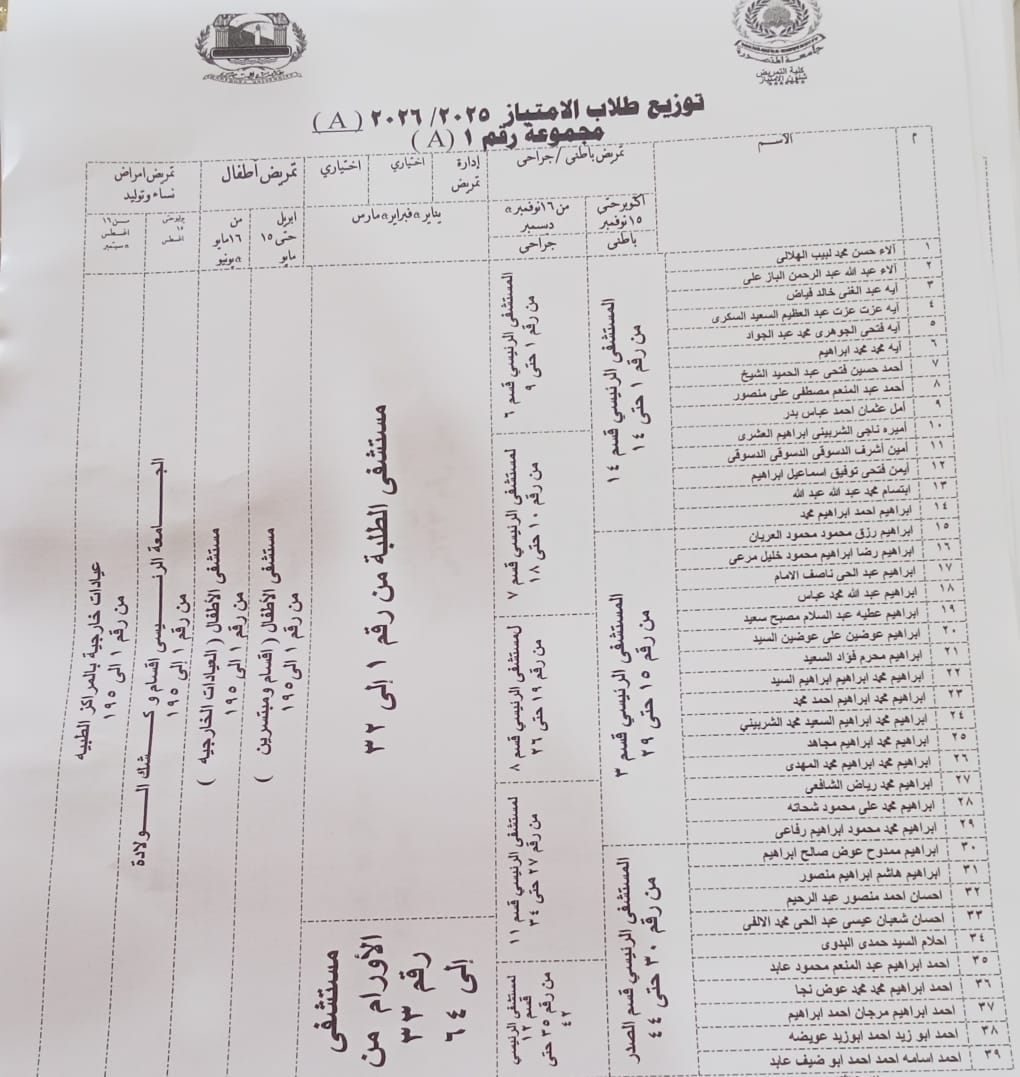 جامعة المنصورة
كلية التمريض
شئون الامتياز
توزيع طلاب الامتياز ٢٠٢٥/ ٢٠٢٦ ( A )
مجموعة رقم ١ ( A )
م
الاسم
تمريض باطني / جراحي
إدارة تمريض
اختياري
اختياري
تمريض أطفال
تمريض امراض نساء وتوليد
أكتوبر حتى ١٥ نوفمبر
باطنى
من ١٦ نوفمبر ، ديسمبر
جراحى
يناير ، فبراير ، مارس
ابريل حتى ١٥ مايو
من ١٦ مايو ، يونيو
يوليو حتى ١٥ اغسطس
من ١٦ اغسطس ، سبتمبر
١ الاء حسن محمد لبيب الهلالى
٢ الاء عبد الله عبد الرحمن الباز على
٣ ايه عبد الغنى خالد فياض
٤ ايه عزت عزت عبد العظيم السعيد السكرى
٥ ايه فتحى الجوهرى محمد عبد الجواد
٦ ايه محمد محمد ابراهيم
٧ احمد حسين فتحى عبد الحميد الشيخ
٨ احمد عبد المنعم مصطفى على منصور
٩ امل عثمان احمد عباس بدر
١٠ اميره ناجى الشربينى ابراهيم العشرى
١١ امين أشرف الدسوقى الدسوقى الدسوقى
١٢ ايمن فتحى توفيق اسماعيل ابراهيم
١٣ ابتسام محمد عبد الله عبد الله
١٤ ابراهيم احمد ابراهيم محمد
١٥ ابراهيم رزق محمود محمود العريان
١٦ ابراهيم رضا ابراهيم محمود خليل مرعى
١٧ ابراهيم عبد الحى ناصف الامام
١٨ ابراهيم عبد الله محمد عباس
١٩ ابراهيم عطيه عبد السلام مصبح سعيد
٢٠ ابراهيم عوضين على عوضين السيد
٢١ ابراهيم محرم فؤاد السعيد
٢٢ ابراهيم محمد ابراهيم ابراهيم السيد
٢٣ ابراهيم محمد ابراهيم احمد محمد
٢٤ ابراهيم محمد ابراهيم السعيد محمد الشربيني
٢٥ ابراهيم محمد ابراهيم مجاهد
٢٦ ابراهيم محمد ابراهيم محمد المهدى
٢٧ ابراهيم محمد رياض الشافعى
٢٨ ابراهيم محمد على محمود شحاته
٢٩ ابراهيم محمد محمود ابراهيم رفاعى
٣٠ ابراهيم ممدوح عوض صالح ابراهيم
٣١ ابراهيم هاشم ابراهيم منصور
٣٢ احسان احمد منصور عبد الرحيم
٣٣ احسان شعبان عيسى عبد الحى محمد الالفى
٣٤ احلام السيد حمدى البدوى
٣٥ احمد ابراهيم عبد المنعم محمود عابد
٣٦ احمد ابراهيم محمد محمد عوض نجا
٣٧ احمد ابراهيم مرجان احمد ابراهيم
٣٨ احمد ابو زيد احمد ابوزيد عويضه
٣٩ احمد اسامه احمد احمد ابو ضيف عابد
المستشفى الرئيسي قسم ١٤
من رقم ١ حتى ١٤
المستشفى الرئيسي قسم ٣
من رقم ١٥ حتى ٢٩
المستشفى الرئيسي قسم الصدر
من رقم ٣٠ حتى ٤٤
المستشفى الرئيسي قسم ٦
من رقم ١ حتى ٩
المستشفى الرئيسي قسم ٧
من رقم ١٠ حتى ١٨
المستشفى الرئيسي قسم ٨
من رقم ١٩ حتى ٢٦
المستشفى الرئيسي قسم ١١
من رقم ٢٧ حتى ٣٤
المستشفى الرئيسي قسم ١٢
من رقم ٣٥ حتى ٤٢
مستشفى الطلبة من رقم ١ إلى ٣٢
مستشفى الأورام من رقم ٣٣ إلى ٦٤
مستشفى الأطفال ( اقسام ومبتسرين )
من رقم ١ الى ١٩٥
مستشفى الأطفال ( العيادات الخارجيه )
من رقم ١ الى ١٩٥
الجامعة الرئيسى اقسام و كشك الولادة
من رقم ١ الى ١٩٥
عيادات خارجية بالمراكز الطبيه
من رقم ١ الى ١٩٥